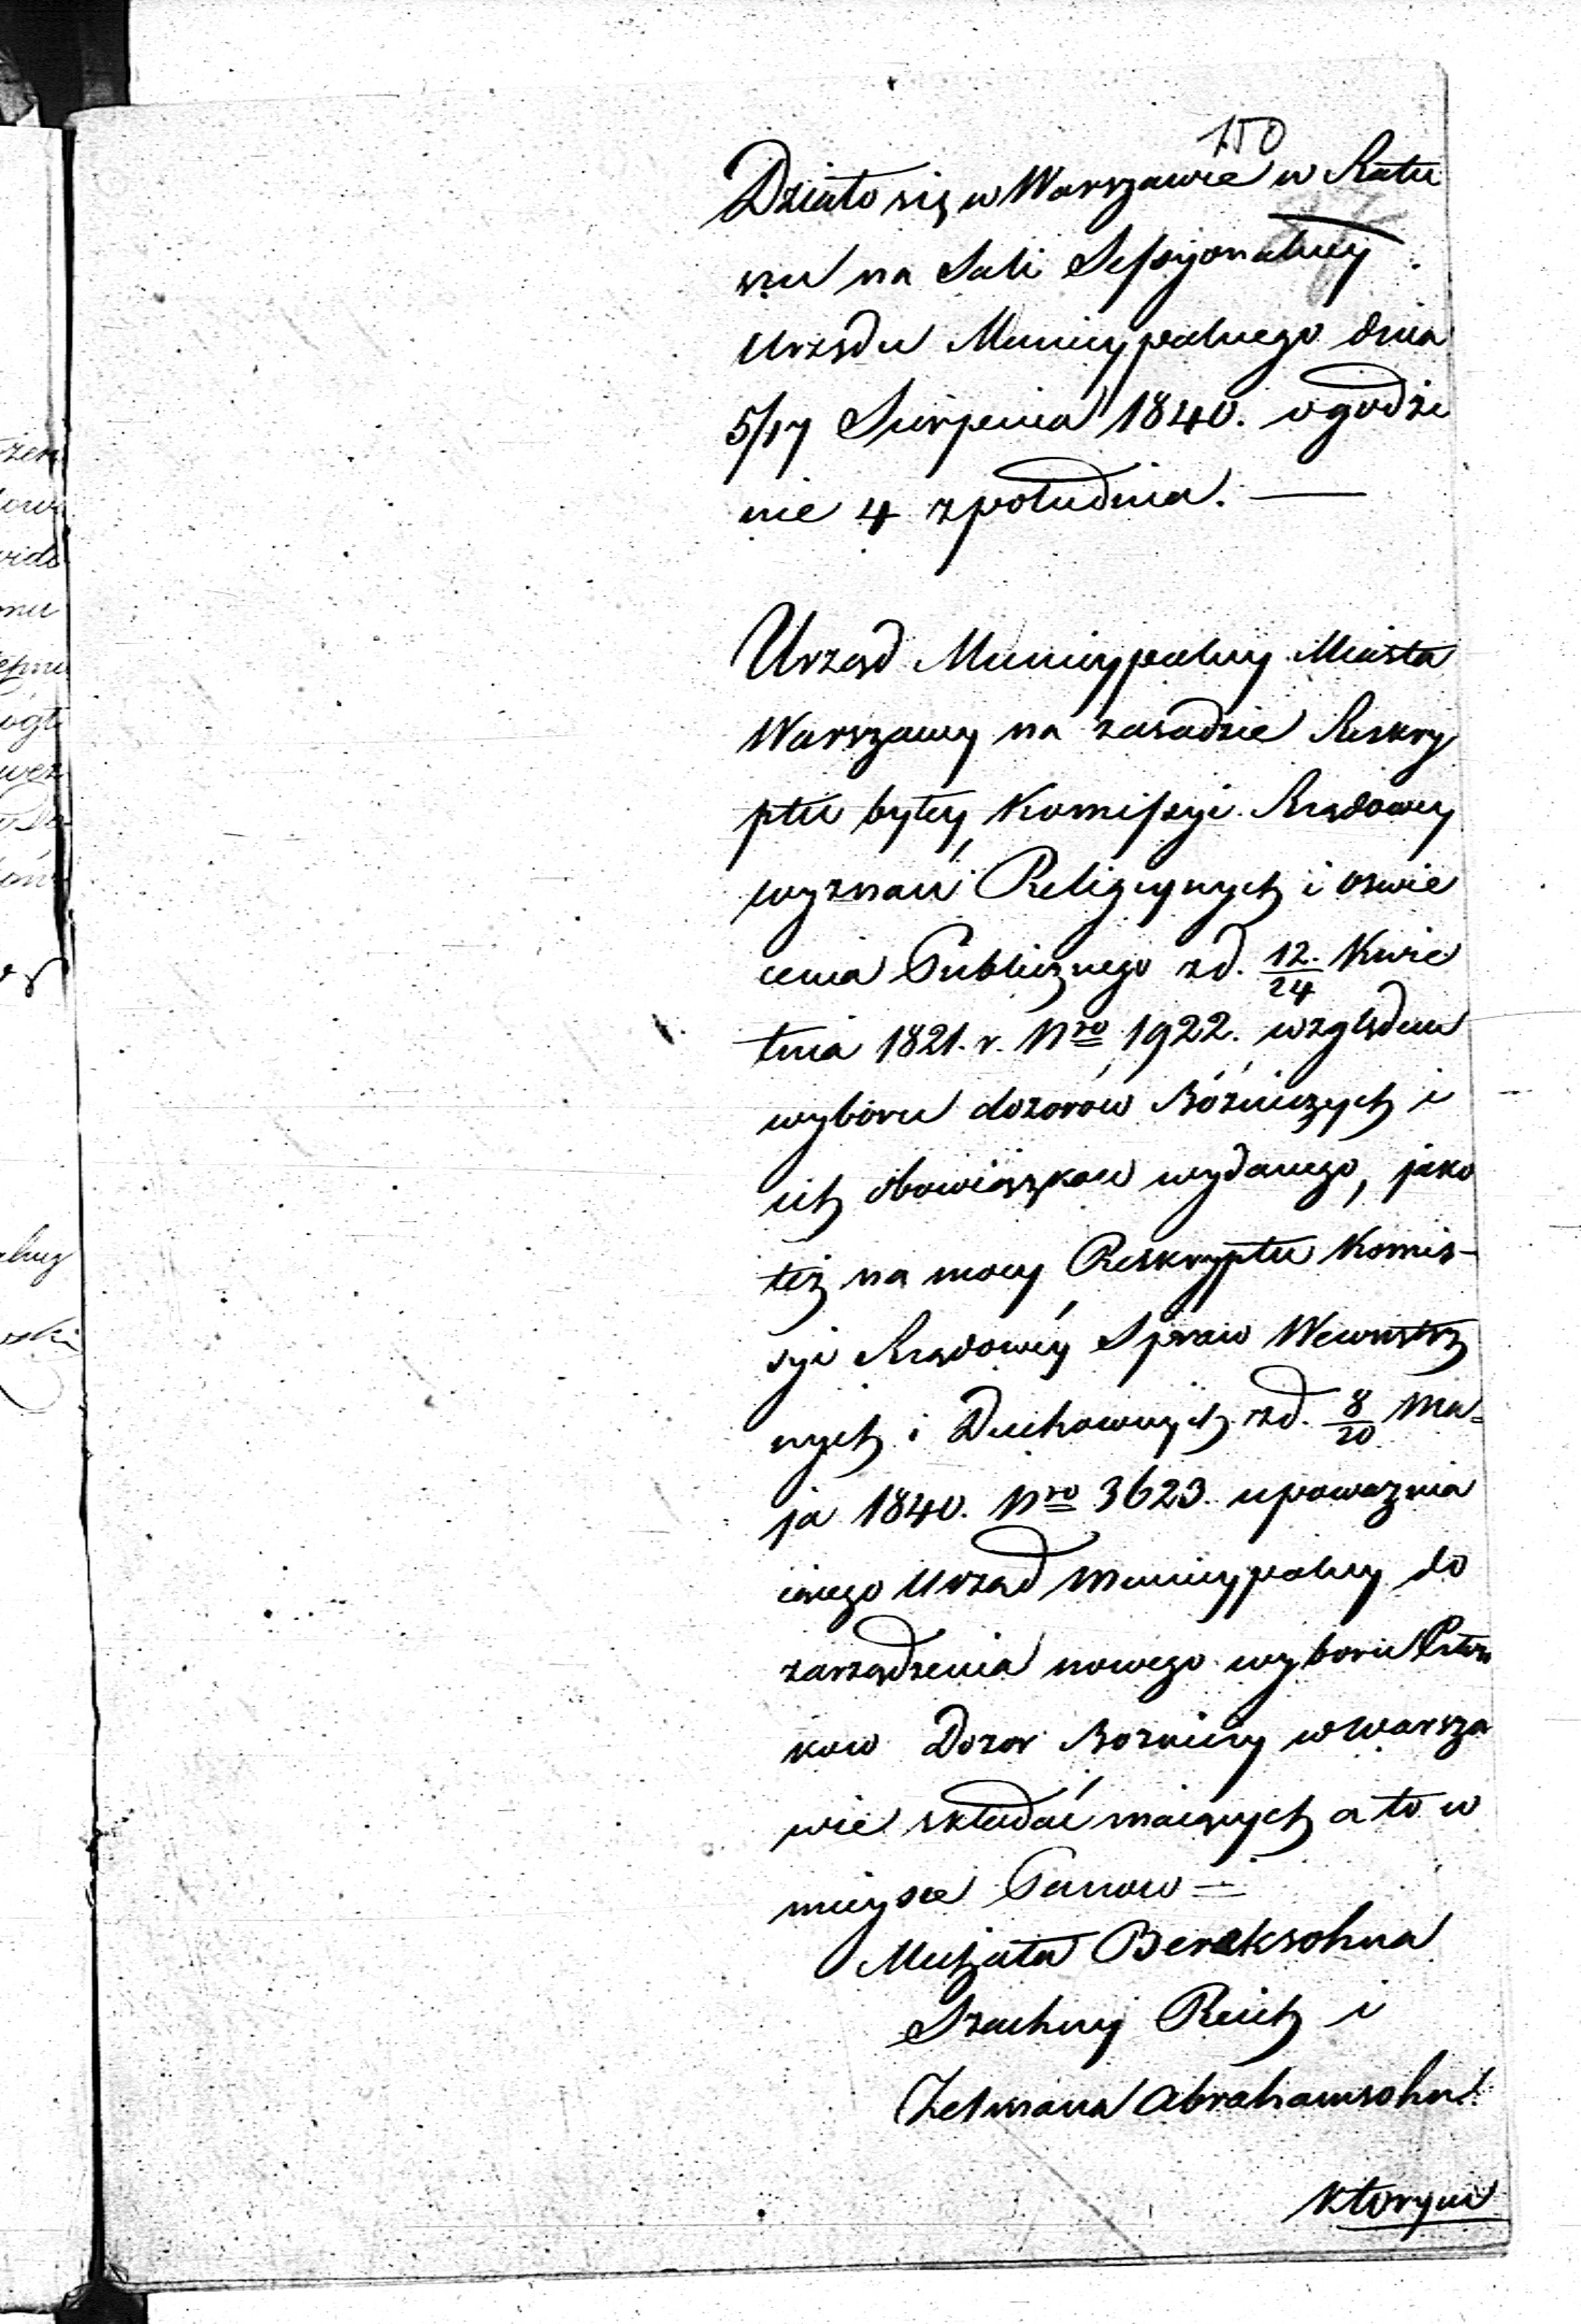 150
Działo się w Warszawie w Ratu
szu na Sali Sessyonalney
Urzędu Municypalnego dnia
5/17 Sierpnia 1840. o godzi
nie 4 z południa. —
Urząd Municypalny Miasta
Warszawy na zasadzie Reskry
ptu byłey Kommissyi Rządowey
wyznań Religiynych i oswie
cenia Publicznego z d. 12./24 Kwie
tnia 1821. r. Nro 1922. względem
wyboru dozorów Bóżniczych i
ich obowiązkow wydanego, jako
też na mocy Reskryptu Komis-
syi Rządowéy Spraw Wewnętrz
nych i Duchownych z d. 8/20 Ma=
ja 1840. Nro 3623. upowaznia
iącego Urząd Municypalny do
zarządzenia nowego wyboru Człon
kow Dozor Bozniczy w Warsza
wie składać maiących a to w
mieysce Panow =
Michała Bereksohna
Szachny Reich i
Zelmana Abrahamsohna
ktorym